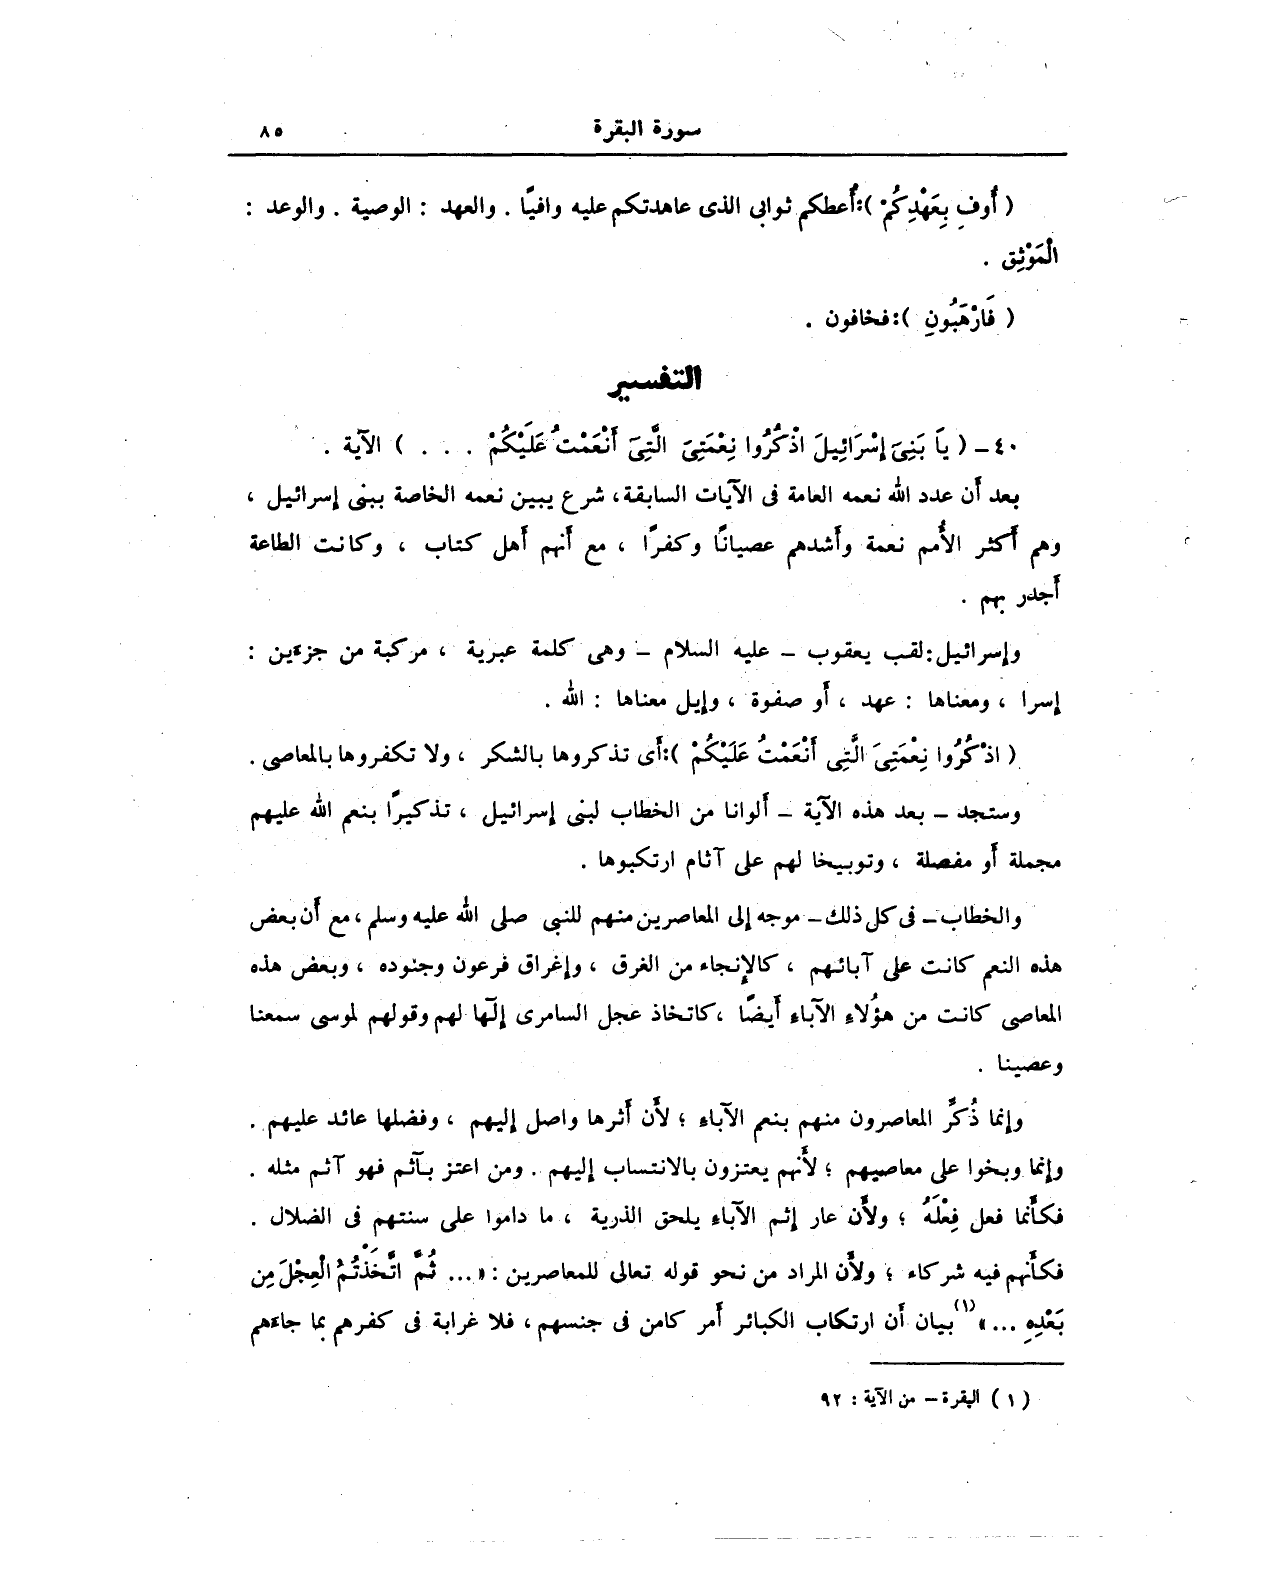 سورة البقرة ٨٥
( أُوفِ بِعَهْدِكُمْ ): أُعطكم ثوابى الذى عاهدتكم عليه وافيًا . والعهد : الوصية . والوعد :
الْمَوْثِق .
( فَارْهَبُونِ ): فخافون .
التفسير
٤٠ – ( يَا بَنِىَ إِسْرَائِيلَ اذْكُرُوا نِعْمَتِىَ الَّتِىَ أَنْعَمْتُ عَلَيْكُمْ . . . ) الآية .
بعد أن عدد الله نعمه العامة فى الآيات السابقة، شرع يبين نعمه الخاصة ببنى إسرائيل ،
وهم أكثر الأُمم نعمة وأشدهم عصيانًا وكفرًا ، مع أنهم أهل كتاب ، وكانت الطاعة
أجدر بهم .
وإسرائيل: لقب يعقوب – عليه السلام – وهى كلمة عبرية ، مركبة من جزءين :
إسرا ، ومعناها : عهد ، أو صفوة ، وإيل معناها : الله .
( اذْكُرُوا نِعْمَتِىَ الَّتِى أَنْعَمْتُ عَلَيْكُمْ ): أى تذكروها بالشكر ، ولا تكفروها بالمعاصى .
وستجد – بعد هذه الآية – ألوانا من الخطاب لبنى إسرائيل ، تذكيرًا بنعم الله عليهم
مجملة أو مفصلة ، وتوبيخا لهم على آثام ارتكبوها .
والخطاب – فى كل ذلك – موجه إلى المعاصرين منهم للنبى صلى الله عليه وسلم ، مع أن بعض
هذه النعم كانت على آبائهم ، كالإنجاء من الغرق ، وإغراق فرعون وجنوده ، وبعض هذه
المعاصى كانت من هؤُلاءِ الآباء أيضًا ، كاتخاذ عجل السامرى إلَهًا لهم وقولهم لموسى سمعنا
وعصينا .
وإنما ذُكِّرَ المعاصرون منهم بنعم الآباء ؛ لأن أثرها واصل إليهم ، وفضلها عائد عليهم .
وإنما وبخوا على معاصيهم ؛ لأنهم يعتزون بالانتساب إليهم . ومن اعتز بآثم فهو آثم مثله .
فكأنما فعل فِعْلَهُ ؛ ولأن عار إثم الآباء يلحق الذرية ، ما داموا على سنتهم فى الضلال .
فكأنهم فيه شركاء ؛ ولأن المراد من نحو قوله تعالى للمعاصرين : «... ثُمَّ اتَّخَذْتُمُ الْعِجْلَ مِن
بَعْدِهِ ...» (١) بيان أن ارتكاب الكبائر أمر كامن فى جنسهم ، فلا غرابة فى كفرهم بما جاءهم
( ١ ) البقرة – من الآية : ٩٢